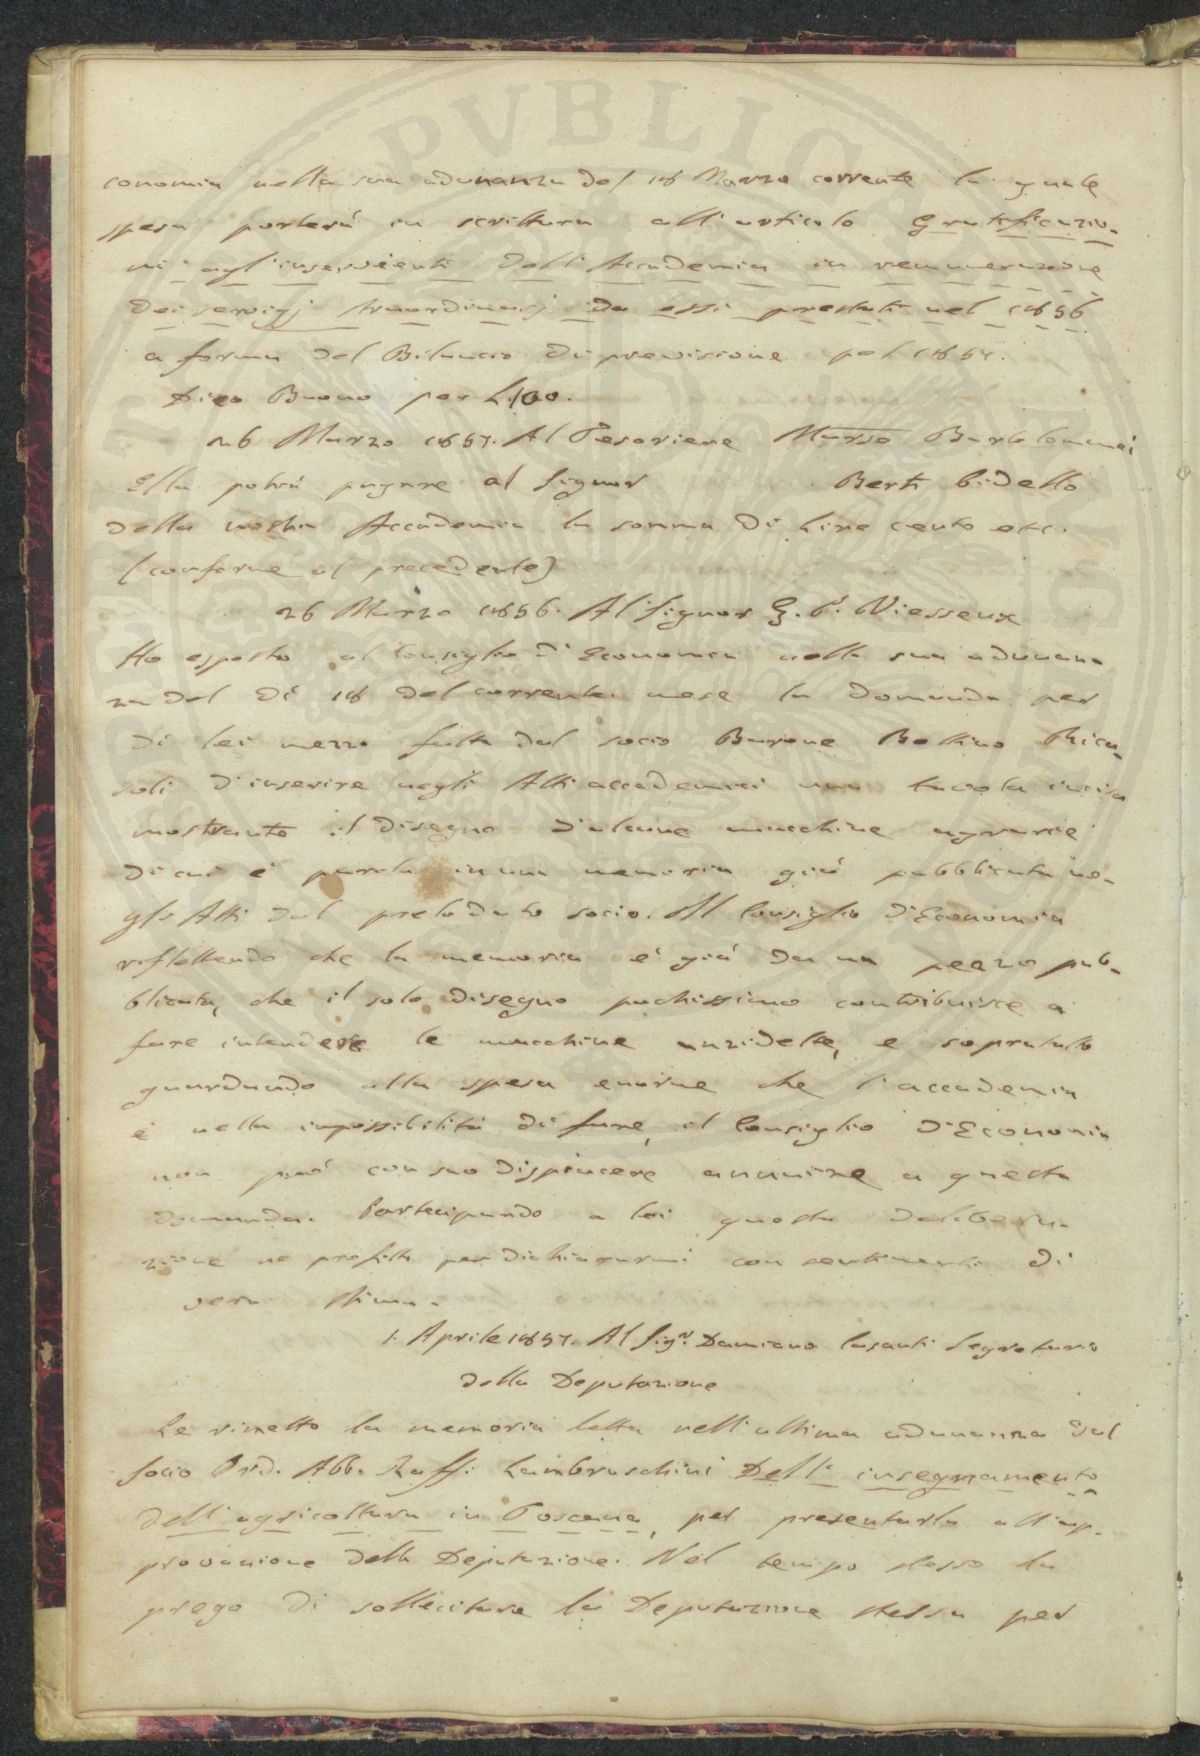 conomia nella sua adunanza del 18 Marzo corrente la quale
spesa porterà in scrittura all'articolo Gratificazio-
ni agl'inservienti dell'Accademia in remunerazione
dei servigj straordinarj da essi prestati nel 1856
a forma del Bilancio di previsione pel 1857.
Dico Buono per L.100.
26 Marzo 1857. Al Tesoriere Marse Bartolommei
Ella potrà pagare al Signor Berti bidello
della nostra Accademia la somma di Lire cento etc.
(conforme al precedente)
26 Marzo 1856. Al Signor G. P. Viesseux
Ho esposto al Consiglio d'Economia nella sua adunan-
za del dì 18 del corrente mese la domanda per
di lei mezzo fatta dal socio Barone Bettino Rica-
soli d'inserire negli Atti accademici una tavola incisa
mostrante il disegno d'alcune macchine agrarie
di cui è parola in una memoria già pubblicata ne-
gli Atti dal prelodato socio. Il Consiglio d'Economia
reflettendo che la memoria è già da un pezzo pub-
blicata, che il solo disegno pochissimo contribuisce a
fare intendere le macchine anzidette, e sopratutto
guardando alla spesa enorme che l'accademia
è nella impossibilità di fare, il Consiglio d'Economia
non può con suo dispiacere annuire a questa
domanda. Partecipando a lei questa delibera-
zione ne profitto per dichiararmi con sentimenti di
vera stima.
1. Aprile 1857. Al Sigr. Damiano Casanti Segretario
della Deputazione
Le rimetto la memoria letta nell'ultima adunanza dal
socio Ord. Abb. Raff. Lambruschini Dell'insegnamento
dell'agricoltura in Toscana, per presentarla all'ap-
provazione della Deputazione. Nel tempo stesso la
prego di sollecitare la Deputazione stessa per
PVBLICA